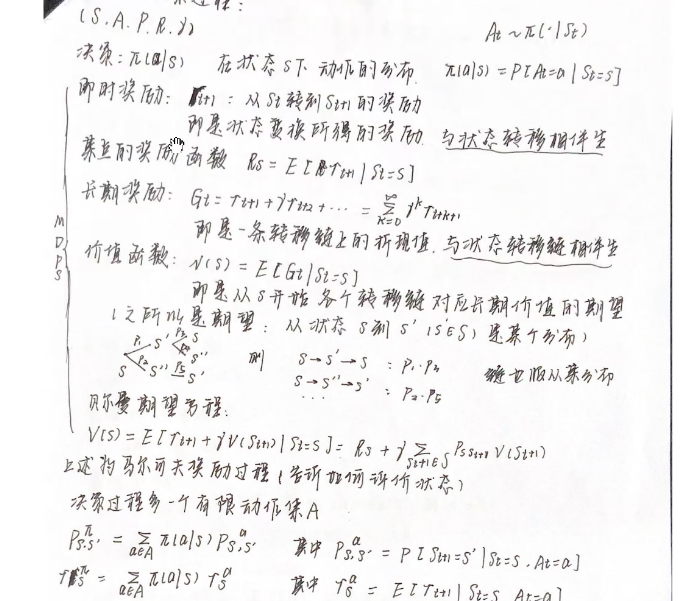 过程:
(S.A.P.R.γ)
At~π(·|St)
决策: π(a|s) 在状态S下 动作的分布. π(a|s) = P[At=a | St=s]
即时奖励: rt+1 : 从St转到St+1的奖励
即是状态变换所得的奖励. 与状态转移相伴生
某点的奖励函数 Rs = E[rt+1 | St=s]
长期奖励: Gt = rt+1 + γrt+2 + ··· = Σ_{k=0}^{∞} γ^k rt+k+1
即是一条转移链上的折现值. 与状态转移链相伴生
MDPs
价值函数: V(s) = E[Gt | St=s]
即是从s开始各个转移链对应长期价值的期望
(之所以是期望: 从状态S到S' (S'∈S) 是某个分布)
S P1 S' P3 S
S''
P2 S'' P5 S'
则 S→S'→S : P1·P3
S→S''→S' : P2·P5
...
链也服从某分布
贝尔曼期望方程:
V(s) = E[rt+1 + γV(St+1) | St=s] = Rs + γ Σ_{St+1∈S} Pss_{t+1} V(St+1)
上述为马尔可夫奖励过程(告诉如何评价状态)
决策过程多一个有限动作集A
P^π_{s,s'} = Σ_{a∈A} π(a|s) P^a_{s,s'} 其中 P^a_{s,s'} = P[St+1=s' | St=s, At=a]
r^π_s = Σ_{a∈A} π(a|s) r^a_s 其中 r^a_s = E[rt+1 | St=s, At=a]